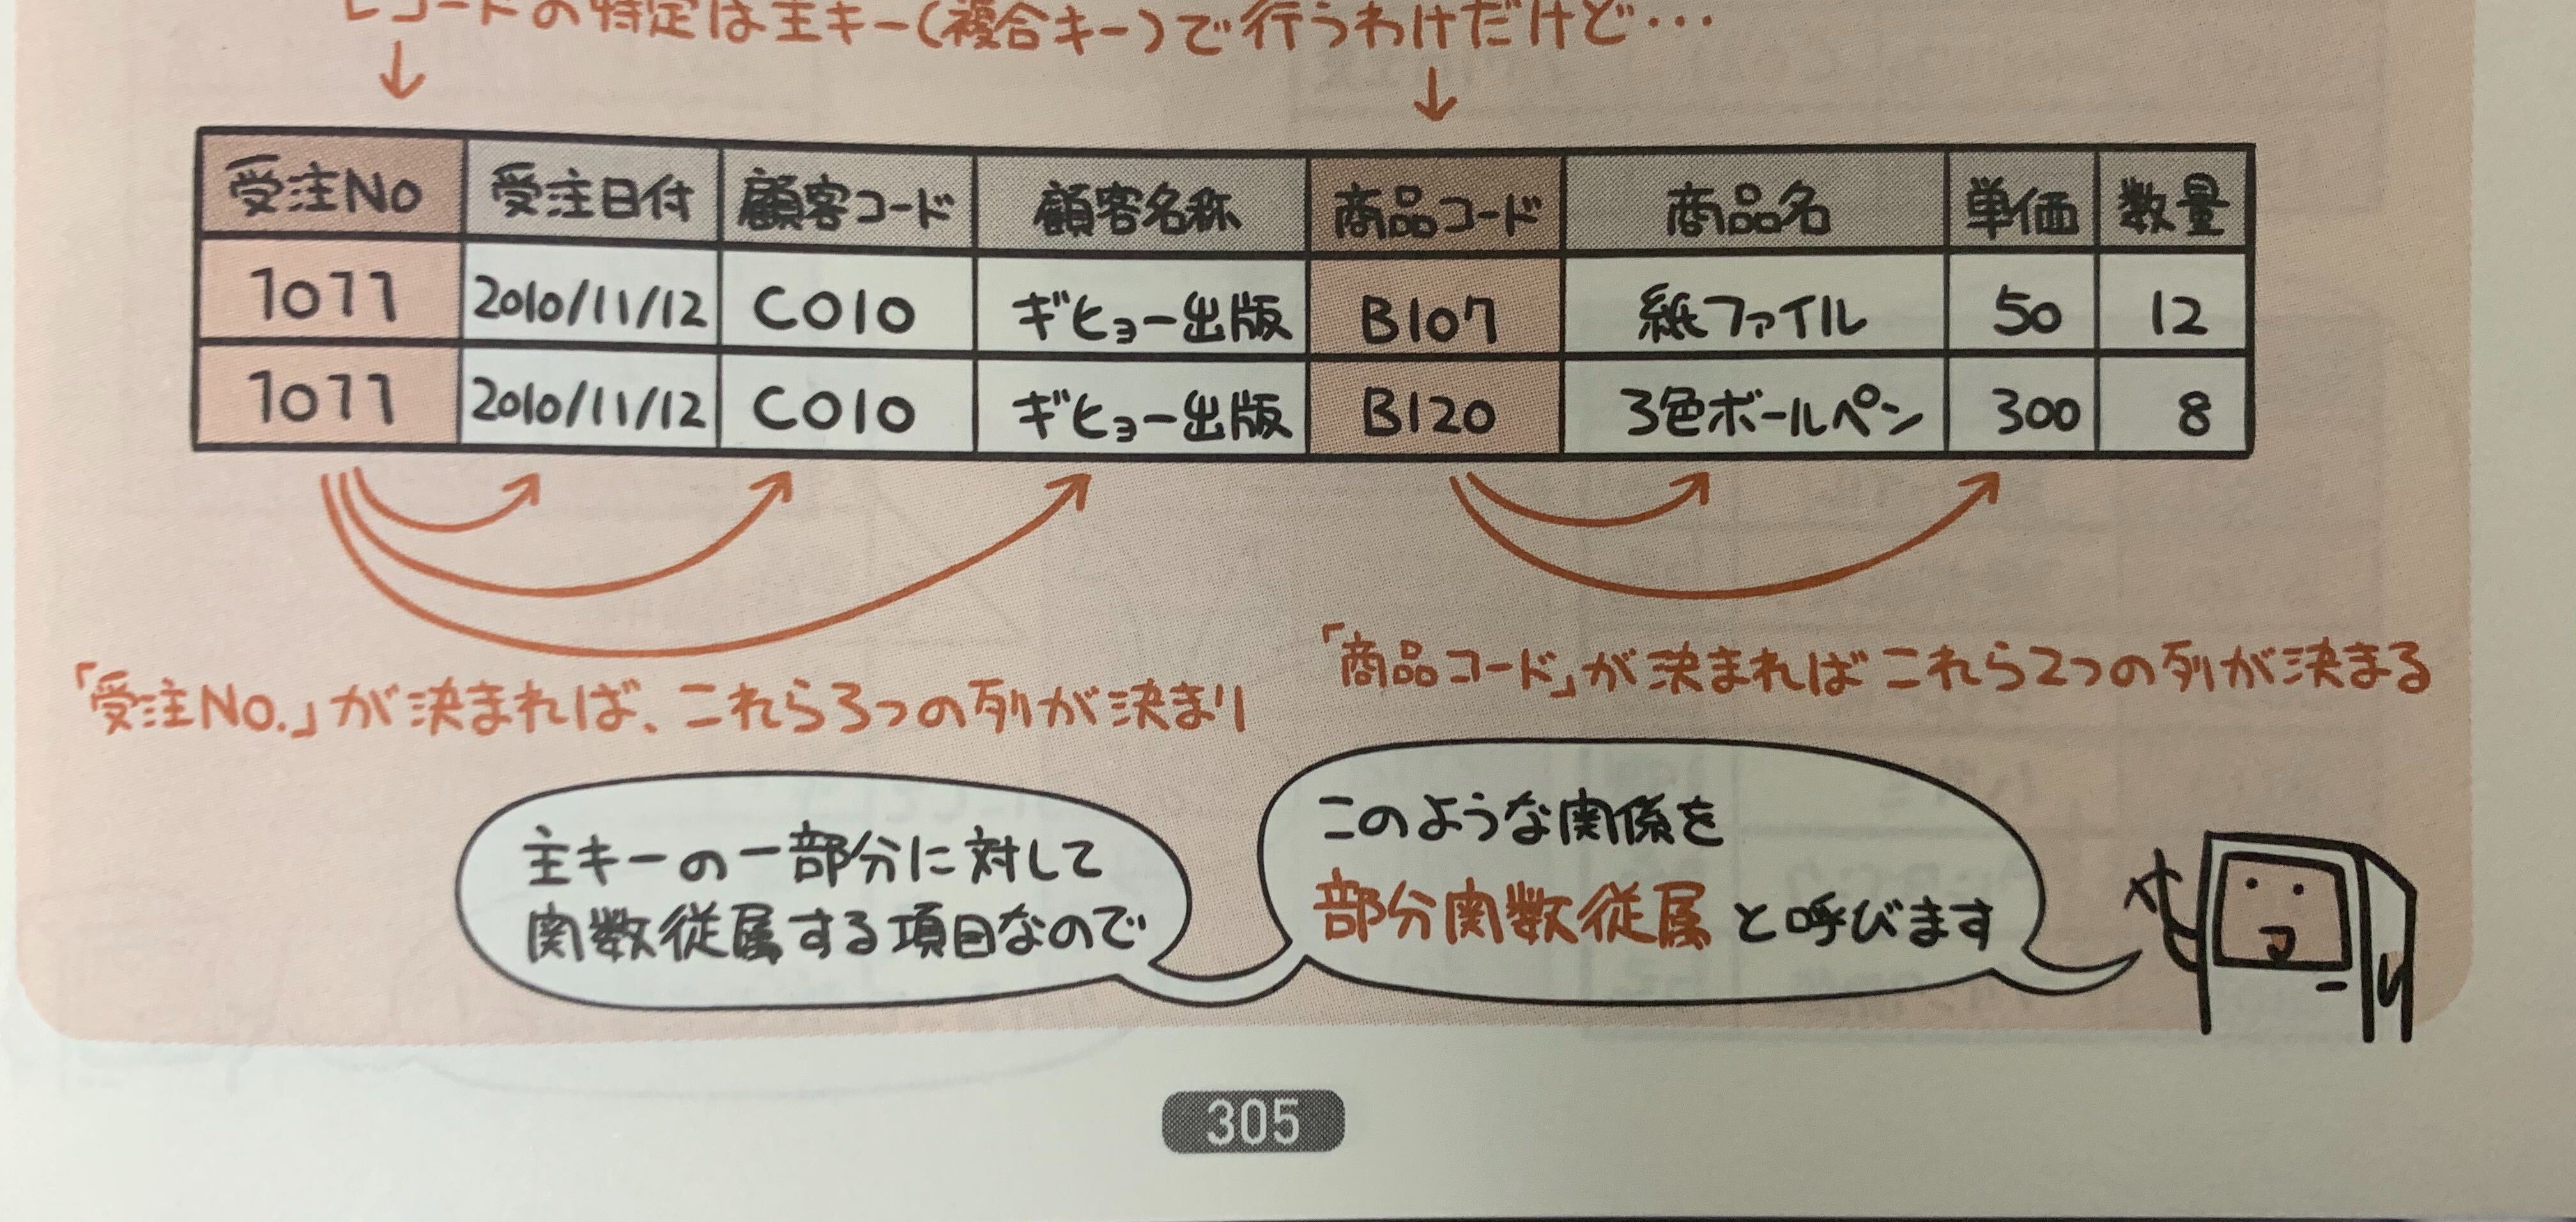 レコードの特定は主キー(複合キー)で行うわけだけど…
受注No 受注日付 顧客コード 顧客名称 商品コード 商品名 単価 数量
1011 2010/11/12 C010 ギヒョー出版 B107 紙ファイル 50 12
1011 2010/11/12 C010 ギヒョー出版 B120 3色ボールペン 300 8
「受注No.」が決まれば、これら3つの列が決まり
「商品コード」が決まればこれら2つの列が決まる
主キーの一部分に対して
関数従属する項目なので
このような関係を
部分関数従属と呼びます
305